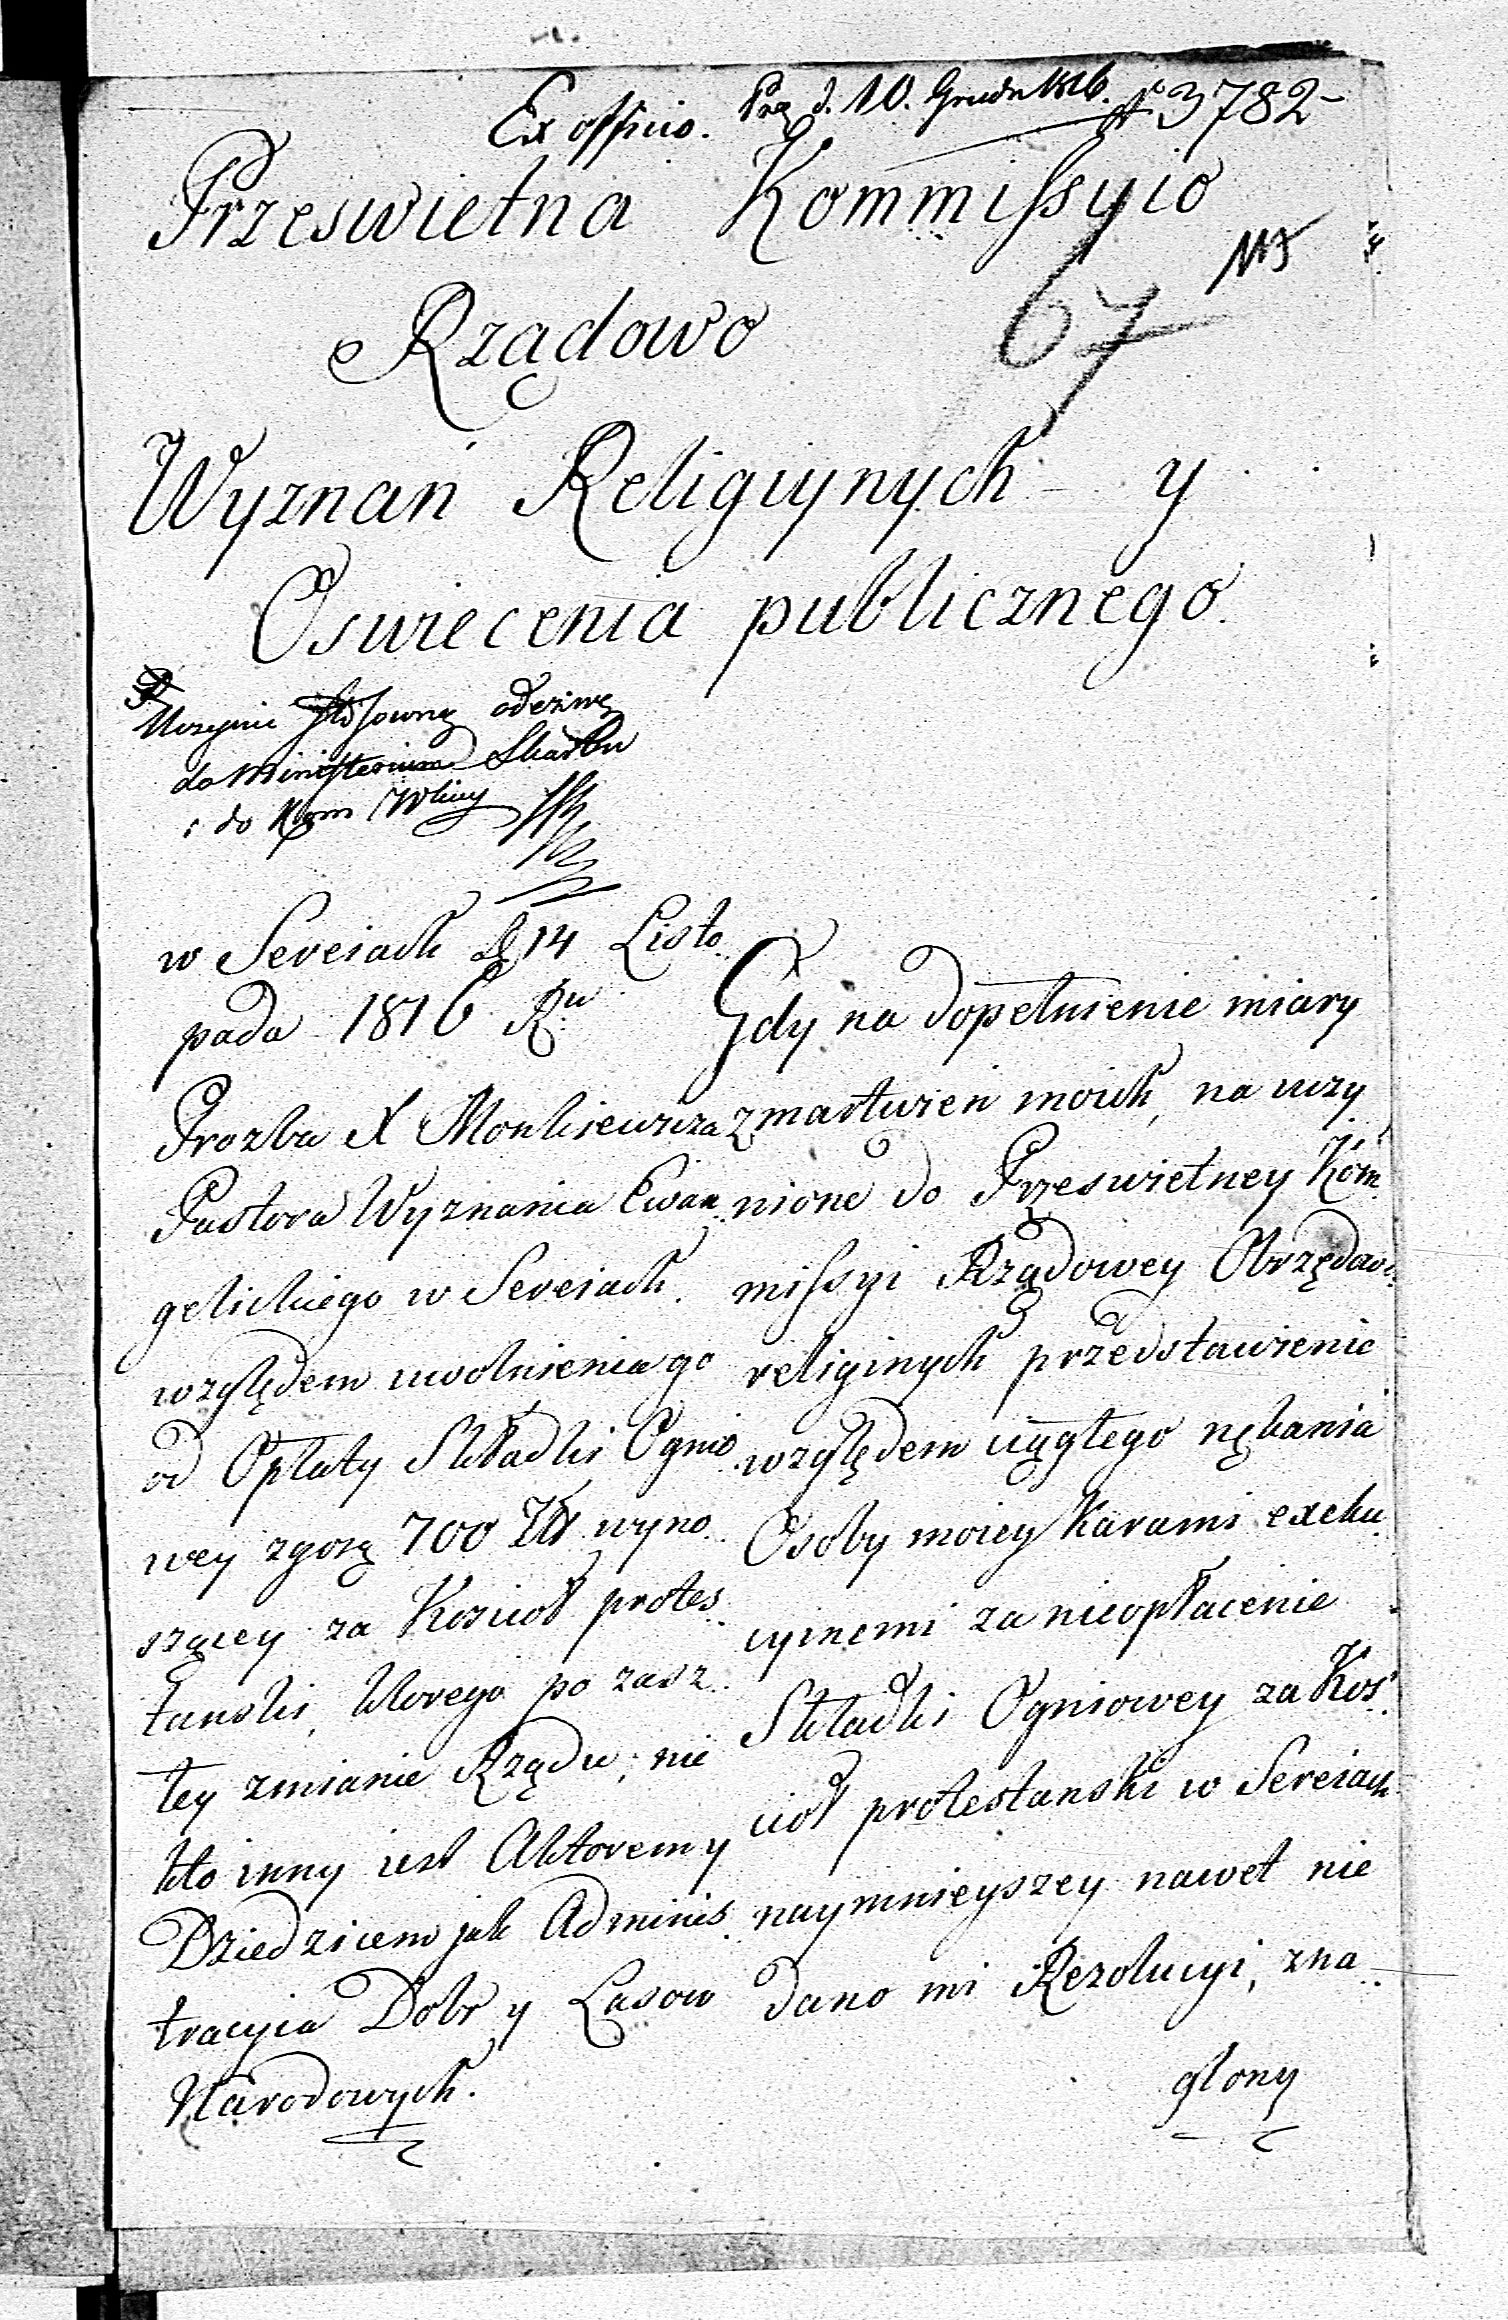 Ex officio. Prz d. 10. Grudn 1816. N 3782
Przeswietna Kommissyio
67
Rządowo
Wyznań Religiynych y
Oswiecenia publicznego.
Uczynić stosowną odezwę
do Ministerium Skarbu
i do Kom
w Sereiach d. 14 Listo
pada 1816 Ru
Prozba X Monkiewicza
Pastora Wyznania Ewan
gelickiego w Sereiach.
względem uwolnienia go
od Opłaty Składki Ognio
wey zgorą 700 Zł wyno
szącey za Koscioł protes
tanski, ktorego po zasz
łey zmianie Rządu, nie
kto inny iest Aktorem y
Dziedzicem jak Adminis
tracyia Dobr y Lasow
Narodowych.
Gdy na dopełnienie miary
zmartwien moich, na uczy
nione do Przeswietney Kom
missyi Rządowey Obrzędow
religinych przedstawienie
względem ciągłego nękania
Osoby moiey karami exeku
cyinemi za nieopłacenie
Składki Ogniowey za Kos
cioł protestanski w Sereiach
naymnieyszey nawet nie
dano mi Rezolucyi, zna
glony